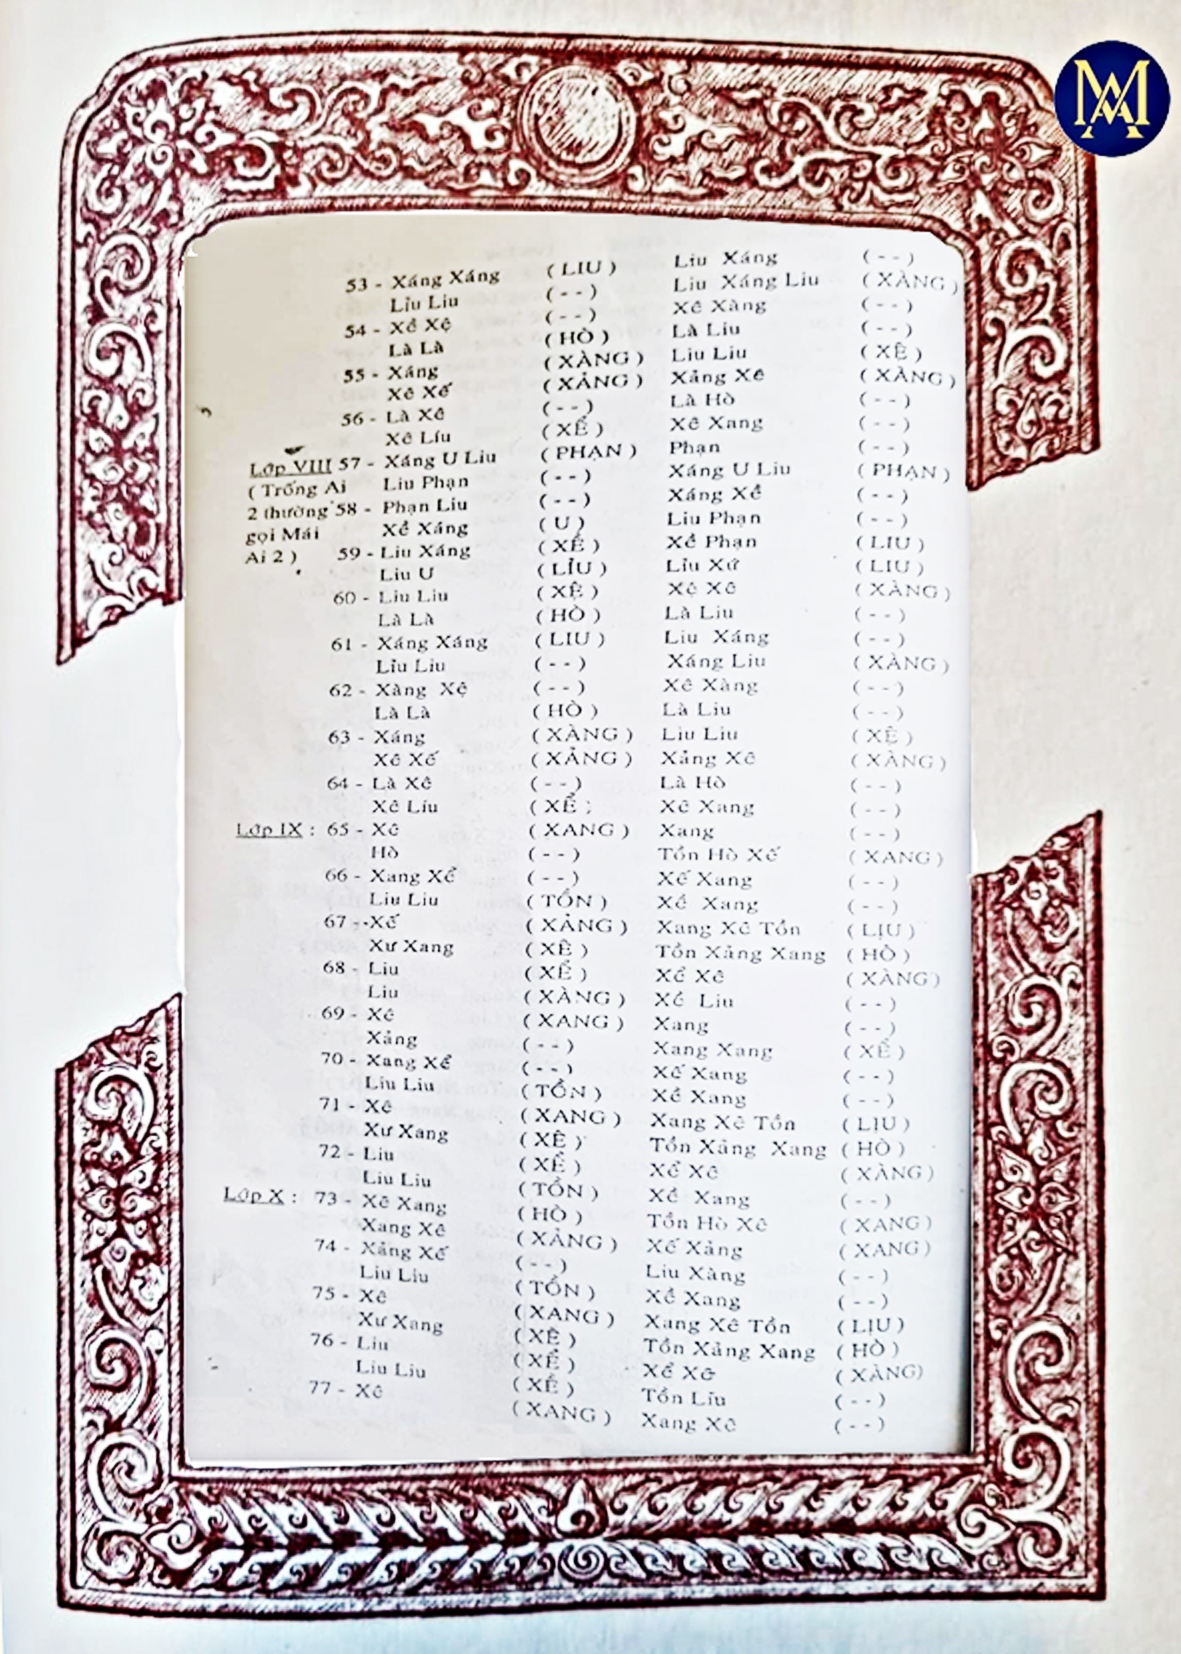 53 - Xáng Xáng ( LIU ) Liu Xáng ( - - )
Lỉu Liu ( - - ) Liu Xáng Liu ( XÀNG )
54 - Xề Xệ ( - - ) Xê Xàng ( - - )
Là Là ( HÒ ) Là Liu ( - - )
55 - Xáng ( XÀNG ) Liu Liu ( XỆ )
Xê Xế ( XẢNG ) Xảng Xê ( XÀNG )
56 - Là Xê ( - - ) Là Hò ( - - )
Xê Líu ( XỂ ) Xê Xang ( - - )
Lớp VIII 57 - Xáng U Liu ( PHẠN ) Phạn ( - - )
( Trống Ai Liu Phạn ( - - ) Xáng U Liu ( PHẠN )
2 thường 58 - Phạn Liu ( - - ) Xáng Xề ( - - )
gọi Mái Xề Xáng ( U ) Liu Phạn ( - - )
Ai 2 ) 59 - Liu Xáng ( XỀ ) Xề Phạn ( LIU )
Liu U ( LỈU ) Lỉu Xứ ( LIU )
60 - Liu Liu ( XỆ ) Xệ Xê ( XÀNG )
Là Là ( HÒ ) Là Liu ( - - )
61 - Xáng Xáng ( LIU ) Liu Xáng ( - - )
Lỉu Liu ( - - ) Xáng Liu ( XÀNG )
62 - Xàng Xệ ( - - ) Xê Xàng ( - - )
Là Là ( HÒ ) Là Liu ( - - )
63 - Xáng ( XÀNG ) Liu Liu ( XỆ )
Xê Xế ( XẢNG ) Xảng Xê ( XÀNG )
64 - Là Xê ( - - ) Là Hò ( - - )
Xê Líu ( XỂ ) Xê Xang ( - - )
Lớp IX : 65 - Xê ( XANG ) Xang ( - - )
Hò ( - - ) Tồn Hò Xế ( XANG )
66 - Xang Xể ( - - ) Xế Xang ( - - )
Liu Liu ( TỒN ) Xề Xang ( - - )
67 - Xế ( XẢNG ) Xang Xê Tồn ( LỊU )
Xư Xang ( XÊ ) Tồn Xảng Xang ( HÒ )
68 - Liu ( XỂ ) Xể Xê ( XÀNG )
Liu ( XÀNG ) Xề Liu ( - - )
69 - Xê ( XANG ) Xang ( - - )
Xảng ( - - ) Xang Xang ( XỂ )
70 - Xang Xể ( - - ) Xế Xang ( - - )
Liu Liu ( TỒN ) Xề Xang ( - - )
71 - Xê ( XANG ) Xang Xê Tồn ( LỊU )
Xư Xang ( XÊ ) Tồn Xảng Xang ( HÒ )
72 - Liu ( XỂ ) Xể Xê ( XÀNG )
Liu Liu ( TỒN ) Xề Xang ( - - )
Lớp X : 73 - Xê Xang ( HÒ ) Tồn Hò Xê ( XANG )
Xang Xê ( XẢNG ) Xế Xảng ( XANG )
74 - Xảng Xế ( - - ) Liu Xàng ( - - )
Liu Liu ( TỒN ) Xề Xang ( - - )
75 - Xê ( XANG ) Xang Xê Tồn ( LỊU )
Xư Xang ( XÊ ) Tồn Xảng Xang ( HÒ )
76 - Liu ( XỂ ) Xể Xê ( XÀNG )
Liu Liu ( XỀ ) Tồn Líu ( - - )
77 - Xê ( XANG ) Xang Xê ( - - )